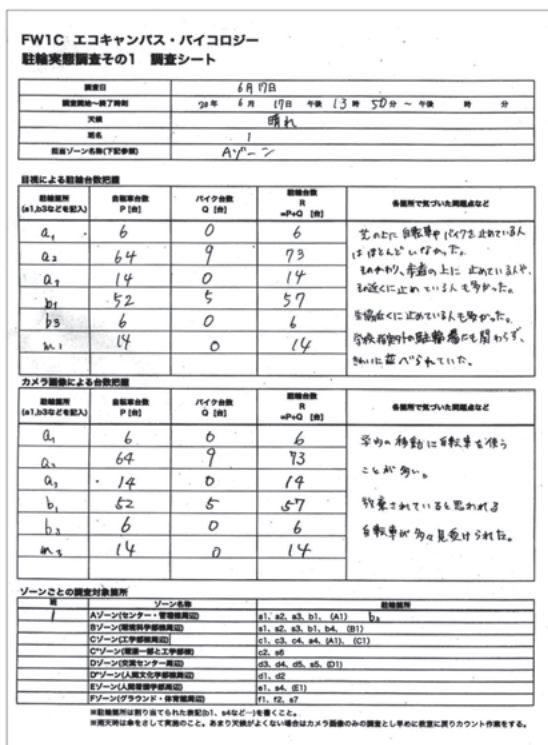 FW1C エコキャンパス・バイコロジー
駐輪実態調査その1 調査シート
調査日 6月17日
調査開始〜終了時刻 20 年 6 月 17日 午後 13 時 50分 〜 午後 時 分
天候 晴れ
班名 1
担当ゾーン名称(下記参照) Aゾーン
目視による駐輪台数把握
駐輪箇所 (a1,b3などを記入) 自転車台数 P [台] バイク台数 Q [台] 駐輪台数 R =P+Q [台] 各箇所で気づいた問題点など
a1 6 0 6
a2 64 9 73
a3 14 0 14
b1 52 5 57
b3 6 0 6
14 0 14
芝の上に自転車やバイクを止めている人
はほとんどいなかった。
そのかわり、歩道の上に止めている人や、
その近くに止めている人も多かった。
近くに止めている人も多かった。
学校指定外の駐輪場にも関わらず、
きれいに並べられていた。
カメラ画像による台数把握
駐輪箇所 (a1,b3などを記入) 自転車台数 P [台] バイク台数 Q [台] 駐輪台数 R =P+Q [台] 各箇所で気づいた問題点など
a1 6 0 6
a2 64 9 73
a3 14 0 14
b1 52 5 57
b3 6 0 6
m3 14 0 14
学内の移動に自転車を使う
ことが多い。
放棄されていると思われる
自転車が多々見受けられた。
ゾーンごとの調査対象箇所
班 ゾーン名称 駐輪箇所
1 Aゾーン(センター・管理棟周辺) a1, a2, a3, b1, (A1) b3
Bゾーン(環境科学部棟周辺) s1, s2, s3, b1, b4, (B1)
Cゾーン(工学部棟周辺) c1, c3, c4, a4, (A1), (C1)
C'ゾーン(環濠一部と工学部棟) c2, s6
Dゾーン(交流センター周辺) d3, d4, d5, s5, (D1)
D'ゾーン(人間文化学部棟周辺) d1, d2
Eゾーン(人間看護学部周辺) e1, s4, (E1)
Fゾーン(グラウンド・体育館周辺) f1, f2, s7
※駐輪箇所は割り当てられた表記(b1、s4など…)を書くこと。
※雨天時は傘をさして実施のこと。あまり天候がよくない場合はカメラ画像のみの調査とし早めに教室に戻りカウント作業をする。